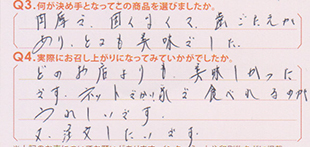 Q3.何が決め手となってこの商品を選びましたか。
肉厚で、固くなくて、歯ごたえが
あり、とても美味でした。
Q4.実際にお召し上がりになってみていかがでしたか。
どのお店よりも、美味しかった
です。ネットでかりて食べれるのが
うれしいです。
又、注文したいです。